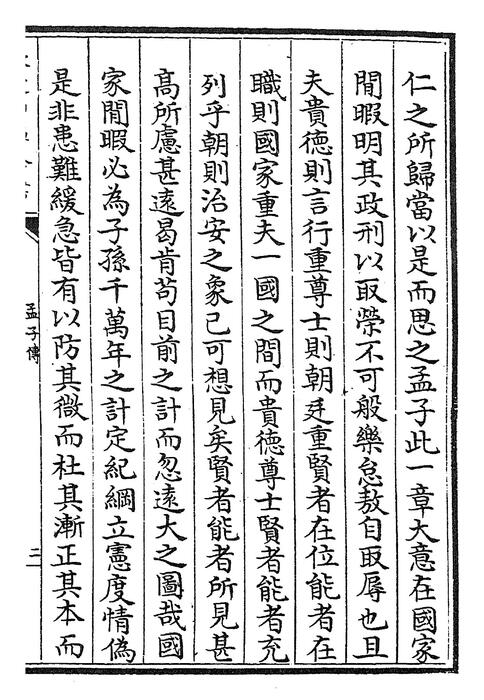 仁之所歸當以是而思之孟子此一章大意在國家
閒暇明其政刑以取榮不可般樂怠敖自取辱也且
夫貴德則言行重尊士則朝廷重賢者在位能者在
職則國家重夫一國之間而貴德尊士賢者能者充
列乎朝則治安之象已可想見矣賢者能者所見甚
高所慮甚遠曷肯茍目前之計而忽遠大之圖哉國
家閒暇必為子孫千萬年之計定紀綱立憲度情偽
是非患難緩急皆有以防其微而杜其漸正其本而
孟子傳
二